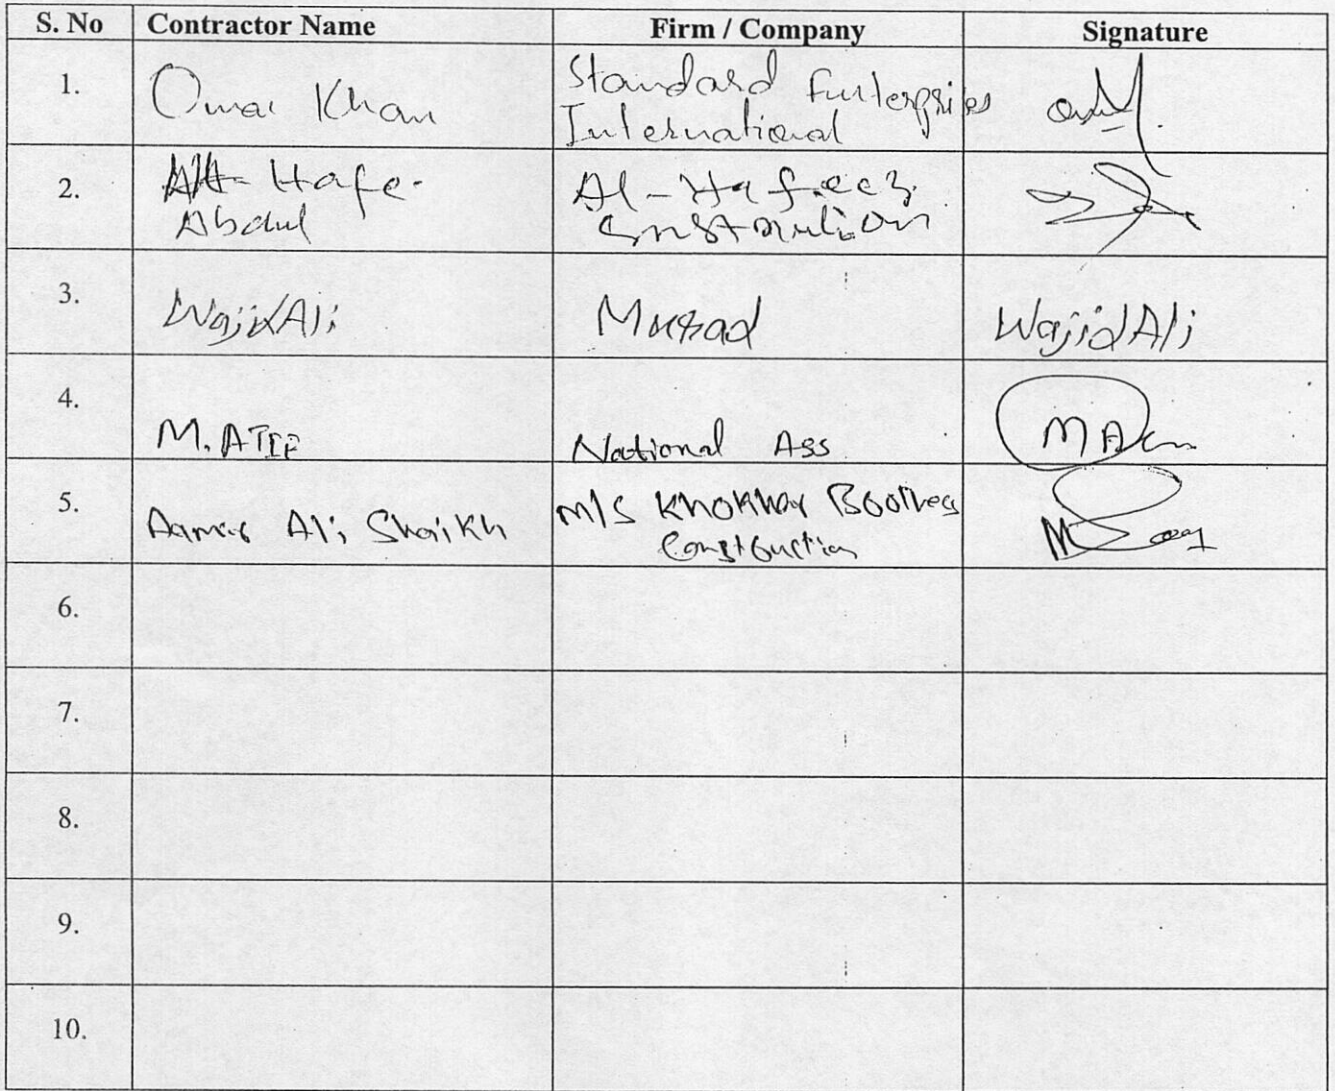 S. No Contractor Name Firm / Company Signature
1. Omar Khan Standard Enterprises
International
2. Hafe.
Abdul
Al-Hafeez
Construction
3. Wajid Ali Murad Wajid Ali
4. M. ATIF National Ass
5. Aamer Ali Shaikh M/S Khokhar Boothes
Construction
6.
7.
8.
9.
10.